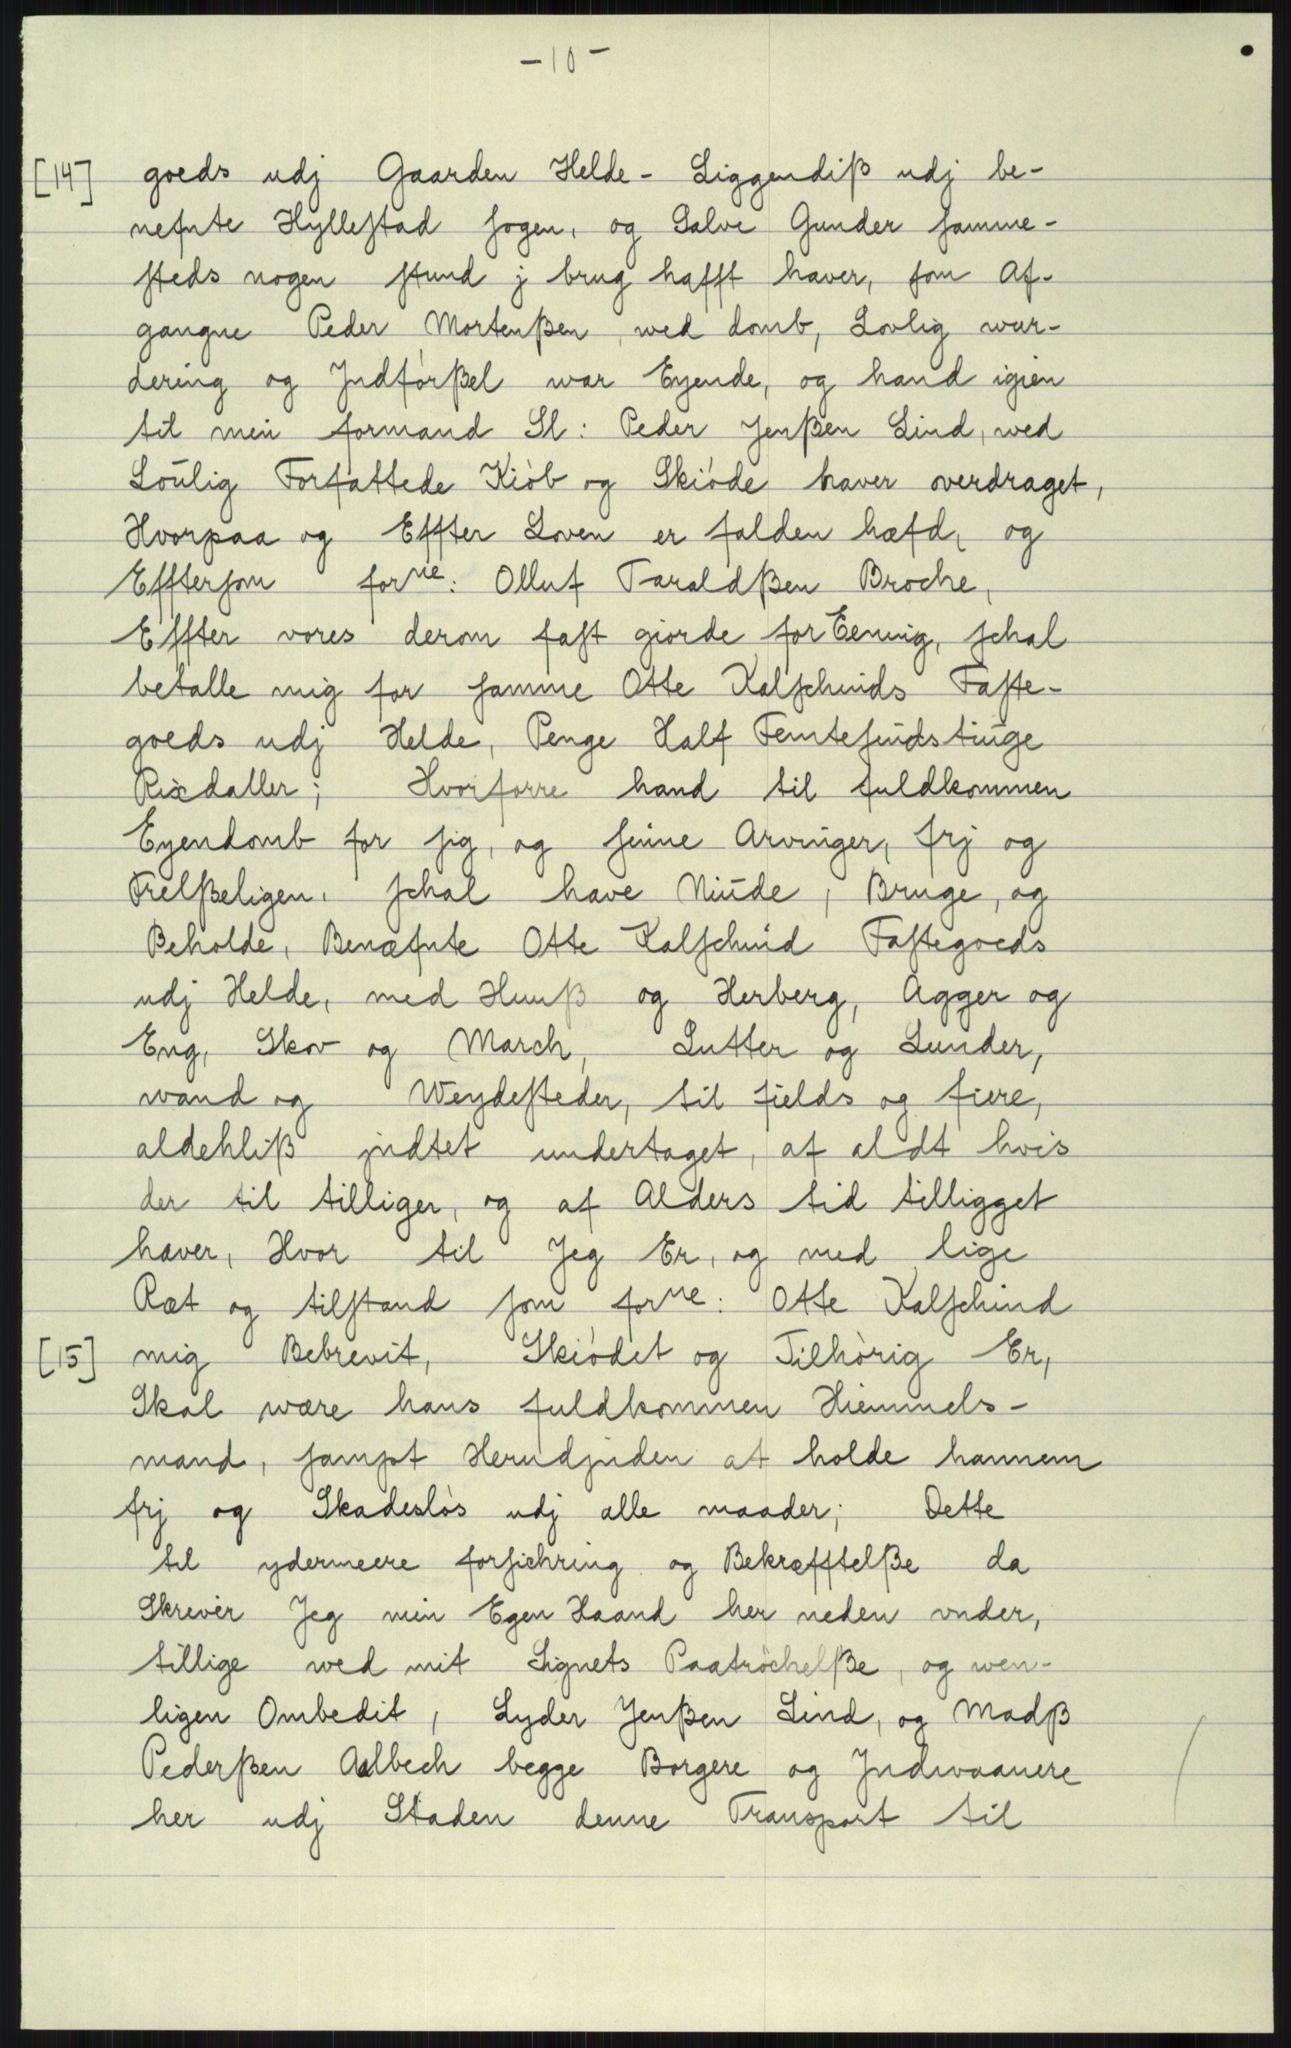 -10-
[14] goeds udj Gaarden Helde - Liggendiß udj be-
nefnte Hyllestad sogen, og Salve Gunder samme-
steds nogen stund j brug hafft haver, som Af-
gangne Peder Mortenßen, wed domb, Lovlig wur-
dering og Jndførßel war Eyende, og hand igien
til min formand Sl: Peder Jenßen Lind, wed
Loülig Forfattede Kiøb og Skiøde haver overdraget,
Hvorpaa og Effter Loven er falden hæfd, og
Efftersom forne: Olluf Taraldßen Broche,
Effter vores derom fast giorde forEening, schal
betalle mig for samme Otte Kalschinds Faste-
goeds udj Helde, Penge Half Femtesindstiüge
Rixdaller; Hvorforre hand til fuldkommen
Eyendomb for sig, og sinne Arvinger, frj og
Frelßeligen, schal have Niüde, Bruge, og
Beholde, Benæfnte Otte Kalschind Fastegoeds
udj Helde, med Huuß og Herberg, Agger og
Eng, Skov og March, Lutter og Lunder,
wand og Weydesteder, til fields og fiere,
aldehliß jndtet undertaget, af aldt hvis
der til tilliger, og af Alders tid tilligget
haver, Hvor til Jeg Er, og med lige
Ræt og tilstand som forne: Otte Kalschind
[15] mig Bebrevit, Skiødet og Tilhørig Er,
Skal wære hans fuldkommen Hiemmels-
mand, sampt Herudjnden at holde hannem
frj og Skadesløs udj alle maader; Dette
til ydermeere forsichring og Bekræfftelße da
Skrevèr Jeg min Egen Haand her neden vnder,
tillige wed mit Signets Paatrøchelße, og wen-
ligen Ombedit, Lyder Jenßen Lind, og Madß
Pederßen Aalbech begge Borgere og Jndwaanere
her udj Staden denne Transport til